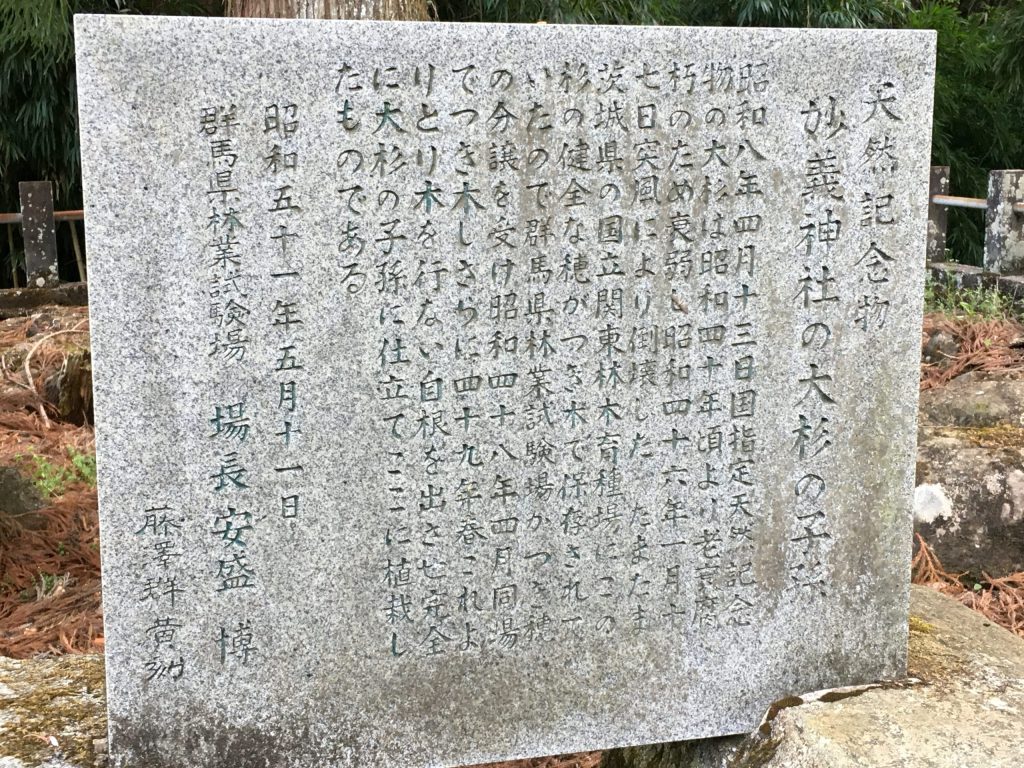 天然記念物
妙義神社の大杉の子孫
昭和八年四月十三日国指定天然記念
物の大杉は昭和四十年頃より老衰腐
朽のため衰弱し昭和四十六年一月十
七日突風により倒壊した たまたま
茨城県の国立関東林木育種場にこの
杉の健全な穂がつぎ木で保存されて
いたので群馬県林業試験場がつぎ穂
の分譲を受け昭和四十八年四月同場
でつぎ木しさらに四十九年春これよ
りとり木を行ない自根を出させ完全
に大杉の子孫に仕立てここに植栽し
たものである
昭和五十一年五月十一日
群馬県林業試験場 場長 安盛 博
藤澤 黄